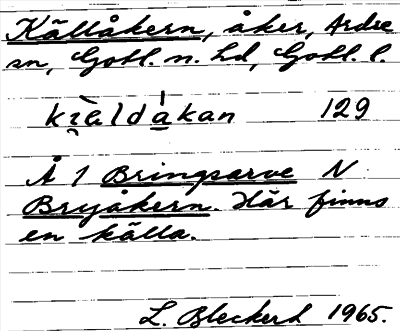 Källåkern, åker, Ardre
sn, Gotl. n. hd, Gotl. l.
ki̯ȁldákan 129
Å 1 Bringsarve N
Bryåkern. Här finns
en källa.
L. Bleckert 1965.